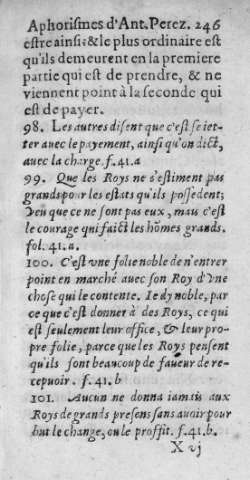 Aphorismes d'Ant. Perez. 246
estre ainsi: & le plus ordinaire est
qu'ils demeurent en la premiere
partie qui est de prendre, & ne
viennent point à la seconde qui
est de payer.
98. Les autres disent que c'est se iet-
ter avec le payement, ainsi qu'on dict,
avec la charge. f. 41. a
99. Que les Roys ne s'estiment pas
grands pour les estats qu'ils possedent;
Veu que ce ne sont pas eux, mais c'est
le courage qui faict les hõmes grands.
fol. 41. a.
100. C'est vne folie noble de n'entrer
point en marché avec son Roy d'vne
chose qui le contente. Ie dy noble, par
ce que c'est donner à des Roys, ce qui
est seulement leur office, & leur pro-
pre folie, parce que les Roys pensent
qu'ils font beaucoup de faueur de re-
cepuoir. f. 41. b
101. Aucun ne donna iamais aux
Roys de grands presens sans auoir pour
but le change, ou le proffit. f. 41. b.
X ij